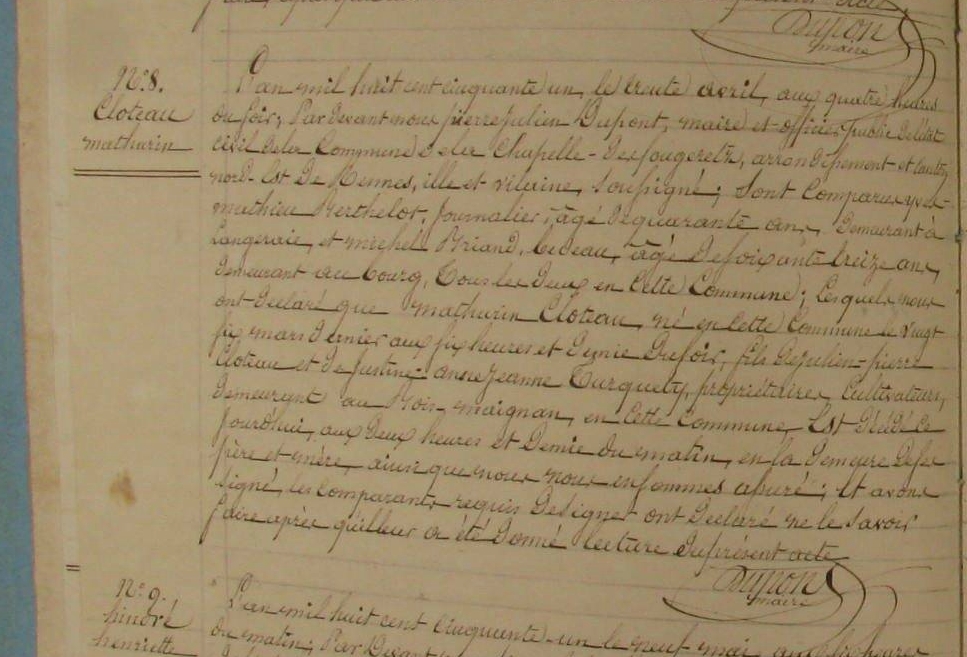 Dupont
maire
N.º 8.
Cloteau
mathurin
L'an mil huit cent cinquante un, le trente avril, aux quatre heures
du soir; Par Devant nous pierre julien Dupont, maire et officier public de l'état
civil de la Commune de la Chapelle-Desfougeretz, arrondissement et Canton
nord-Est De Rennes, ille et vilaine, soussigné; Sont Comparus yves-
mathieu Berthelot, journalier, âgé de quarante ans, Demeurant à
Langeraie, et michel Briand, bedeau, âgé de soixante treize ans,
demeurant au bourg, Tous les Deux en Cette Commune; Lesquels nous
ont Déclaré que mathurin Cloteau, né en Cette Commune le vingt
six mars Dernier aux six heures et Demie du soir, fils de julien-pierre
Cloteau et de justine-anne jeanne Turquety, propriétaires Cultivateurs,
Demeurant au Bois-maignan, en Cette Commune, Est Décédé Ce
jourd'hui, aux Deux heures et Demie du matin, en la Demeure De ses
père et mère, ainsi que nous nous en sommes assuré; Et avons
Signé, les Comparants requis De signer ont Déclaré ne le savoir
faire après qu'il leur a été Donné lecture du présent acte
Dupont
maire
N.º 9.
hindré
henriette
L'an mil huit cent cinquante-un le neuf mai, aux heures
du matin; Par Devant